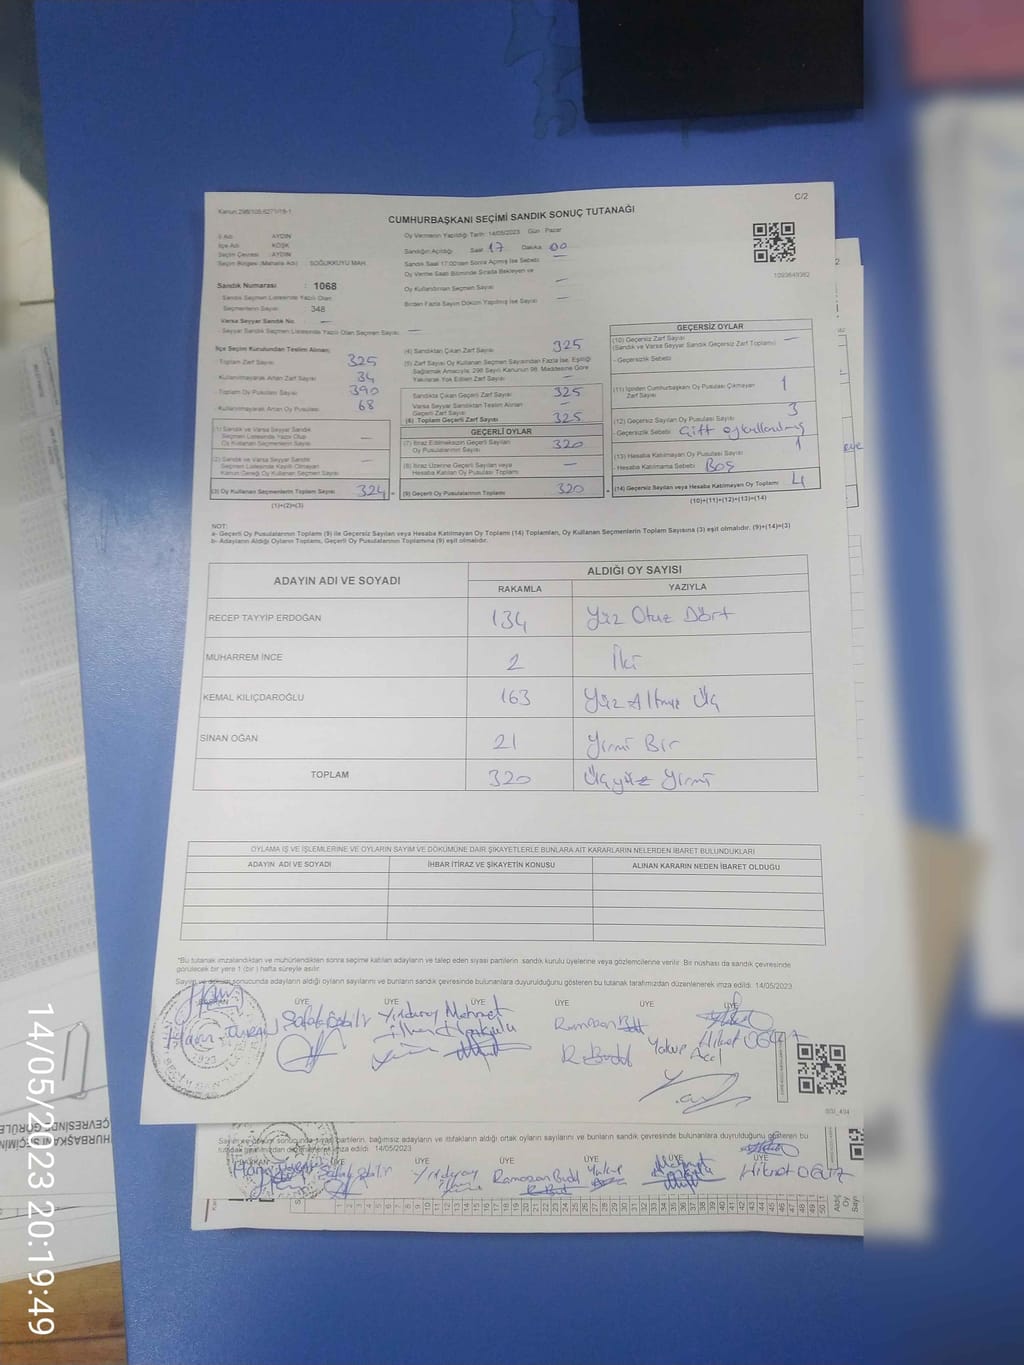 C/2
Kanun:298/105;6271/19-1
CUMHURBAŞKANI SEÇİMİ SANDIK SONUÇ TUTANAĞI
İl Adı : AYDIN
İlçe Adı : KÖŞK
Seçim Çevresi : AYDIN
Seçim Bölgesi (Mahalle Adı) : SOĞUKKUYU MAH.
Oy Vermenin Yapıldığı Tarih: 14/05/2023 Gün : Pazar
Sandığın Açıldığı Saat 17 Dakika 00
Sandık Saat 17:00'den Sonra Açılmış İse Sebebi —
Oy Verme Saati Bitiminde Sırada Bekleyen ve
Oy Kullandırılan Seçmen Sayısı —
Birden Fazla Sayım Döküm Yapılmış İse Sayısı —
1093649362
Sandık Numarası : 1068
Sandık Seçmen Listesinde Yazılı Olan
Seçmenlerin Sayısı 348
Varsa Seyyar Sandık No. —
- Seyyar Sandık Seçmen Listesinde Yazılı Olan Seçmen Sayısı: —
İlçe Seçim Kurulundan Teslim Alınan;
- Toplam Zarf Sayısı 325
- Kullanılmayarak Artan Zarf Sayısı 34
- Toplam Oy Pusulası Sayısı 390
- Kullanılmayarak Artan Oy Pusulası 68
(1) Sandık ve Varsa Seyyar Sandık
Seçmen Listesinde Yazılı Olup
Oy Kullanan Seçmen Sayısı —
(2) Sandık ve Varsa Seyyar Sandık
Seçmen Listesinde Kayıtlı Olmayan
Kanun Gereği Oy Kullanan Seçmen Sayısı —
(3) Oy Kullanan Seçmenlerin Toplam Sayısı 324
(1)+(2)=(3)
(4) Sandıktan Çıkan Zarf Sayısı 325
(5) Zarf Sayısı Oy Kullanan Seçmen Sayısından Fazla İse, Eşitliği
Sağlamak Amacıyla, 298 Sayılı Kanunun 98. Maddesine Göre
Yakılarak Yok Edilen Zarf Sayısı —
Sandıkta Çıkan Geçerli Zarf Sayısı 325
Varsa Seyyar Sandıktan Teslim Alınan
Geçerli Zarf Sayısı —
(6) Toplam Geçerli Zarf Sayısı 325
GEÇERLİ OYLAR
(7) İtiraz Edilmeksizin Geçerli Sayılan
Oy Pusulalarının Sayısı 320
(8) İtiraz Üzerine Geçerli Sayılan veya
Hesaba Katılan Oy Pusulası Toplamı —
(9) Geçerli Oy Pusulalarının Toplamı 320
GEÇERSİZ OYLAR
(10) Geçersiz Zarf Sayısı
(Sandık ve Varsa Seyyar Sandık Geçersiz Zarf Toplamı) —
- Geçersizlik Sebebi
(11) İçinden Cumhurbaşkanı Oy Pusulası Çıkmayan
Zarf Sayısı 1
(12) Geçersiz Sayılan Oy Pusulası Sayısı 3
Geçersizlik Sebebi Çift oy kullanılmış
(13) Hesaba Katılmayan Oy Pusulası Sayısı 1
- Hesaba Katılmama Sebebi Boş
(14) Geçersiz Sayılan veya Hesaba Katılmayan Oy Toplamı 4
(10)+(11)+(12)+(13)=(14)
NOT:
a- Geçerli Oy Pusulalarının Toplamı (9) ile Geçersiz Sayılan veya Hesaba Katılmayan Oy Toplamı (14) Toplamları, Oy Kullanan Seçmenlerin Toplam Sayısına (3) eşit olmalıdır. (9)+(14)=(3)
b- Adayların Aldığı Oyların Toplamı, Geçerli Oy Pusulalarının Toplamına (9) eşit olmalıdır.
ADAYIN ADI VE SOYADI
ALDIĞI OY SAYISI
RAKAMLA YAZIYLA
RECEP TAYYİP ERDOĞAN 134 Yüz Otuz Dört
MUHARREM İNCE 2 İki
KEMAL KILIÇDAROĞLU 163 Yüz Altmış Üç
SİNAN OĞAN 21 Yirmi Bir
TOPLAM 320 Üçyüz Yirmi
OYLAMA İŞ VE İŞLEMLERİNE VE OYLARIN SAYIM VE DÖKÜMÜNE DAİR ŞİKAYETLERLE BUNLARA AİT KARARLARIN NELERDEN İBARET BULUNDUKLARI
ADAYIN ADI VE SOYADI İHBAR İTİRAZ VE ŞİKAYETİN KONUSU ALINAN KARARIN NEDEN İBARET OLDUĞU
*Bu tutanak imzalandıktan ve mühürlendikten sonra seçime katılan adayların ve talep eden siyasi partilerin sandık kurulu üyelerine veya gözlemcilerine verilir. Bir nüshası da sandık çevresinde
görülecek bir yere 1 (bir ) hafta süreyle asılır.
Sayım ve döküm sonucunda adayların aldığı oyların sayılarını ve bunların sandık çevresinde bulunanlara duyurulduğunu gösteren bu tutanak tarafımızdan düzenlenerek imza edildi. 14/05/2023
BAŞKAN ÜYE ÜYE ÜYE ÜYE ÜYE ÜYE
Yıldıray Mehmet
Ramazan
Yakup Hikmet OĞUZ
R. Budd
1923
Sayım ve döküm sonucunda siyasi partilerin, bağımsız adayların ve ittifakların aldığı ortak oyların sayılarını ve bunların sandık çevresinde bulunanlara duyurulduğunu gösteren bu
tutanak tarafımızdan düzenlenerek imza edildi. 14/05/2023
BAŞKAN ÜYE ÜYE ÜYE ÜYE ÜYE ÜYE
Yıldıray Ramazan Budd Yakup Mehmet Hikmet OĞUZ
14/05/2023 20:19:49